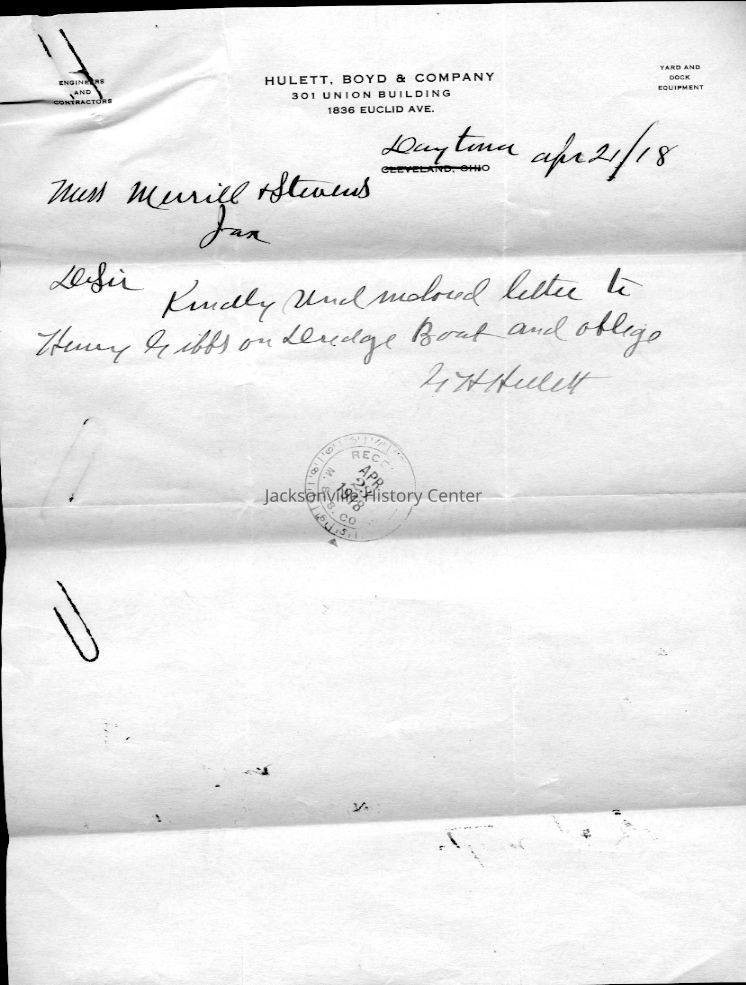 ENGINEERS
AND
CONTRACTORS
HULETT, BOYD & COMPANY
301 UNION BUILDING
1836 EUCLID AVE.
YARD AND
DOCK
EQUIPMENT
Daytona Apr 21/18
CLEVELAND, OHIO
Mess Merrill & Stevens
Jax
D Sir Kindly send inclosed letter to
Henry Gibbs on Dredge Boat and oblige
H Hulett
RECD
APR
1918
M. S. S. CO
Jacksonville History Center